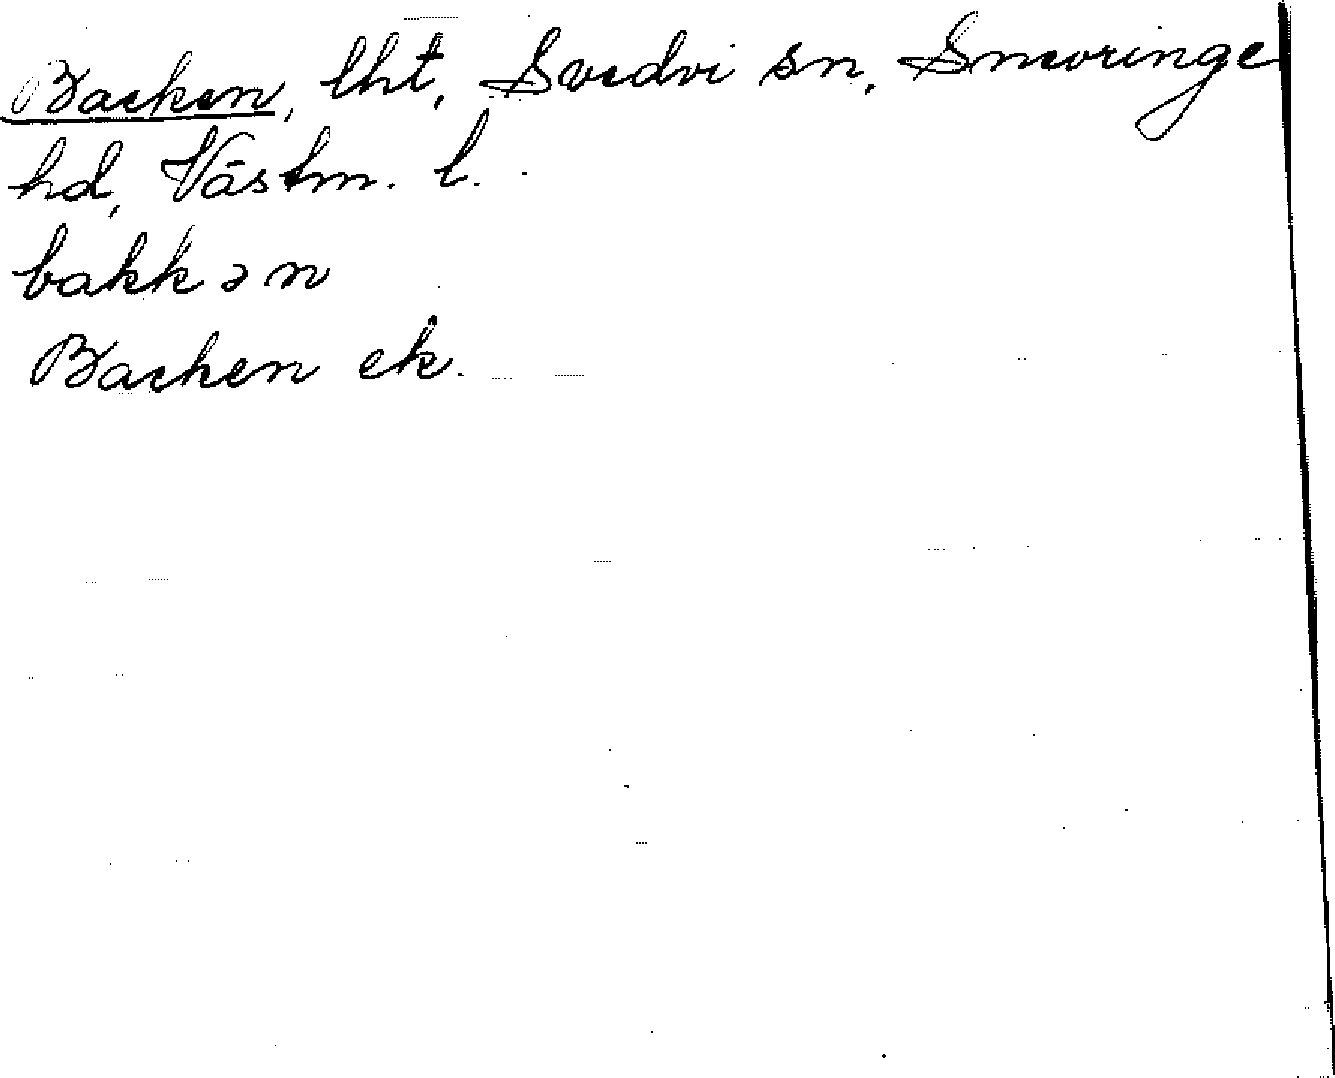 Backen, lht, Svedvi sn, Snevringe
hd, Västm. l.
bakkən
Backen ek.